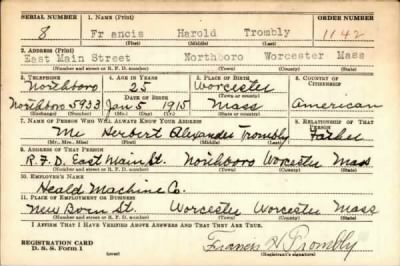 SERIAL NUMBER 1. NAME (Print) ORDER NUMBER
8 Francis Harold Trombly 1142
(First) (Middle) (Last)
2. ADDRESS (Print)
East Main Street Northboro Worcester Mass
(Number and street or R. F. D. number) (Town) (County) (State)
3. TELEPHONE 4. AGE IN YEARS 5. PLACE OF BIRTH 6. COUNTRY OF CITIZENSHIP
Northboro 25 Worcester
DATE OF BIRTH (Town or county)
Northboro 5933 Jan 5 1915 Mass American
(Exchange) (Number) (Mo.) (Day) (Yr.) (State or country)
7. NAME OF PERSON WHO WILL ALWAYS KNOW YOUR ADDRESS 8. RELATIONSHIP OF THAT PERSON
Mr Herbert Alexander Trombly Father
(Mr., Mrs., Miss) (First) (Middle) (Last)
9. ADDRESS OF THAT PERSON
R.F.D. East Main St. Northboro Worcester Mass
(Number and street or R. F. D. number) (Town) (County) (State)
10. EMPLOYER'S NAME
Heald Machine Co.
11. PLACE OF EMPLOYMENT OR BUSINESS
New Bond St. Worcester Worcester Mass
(Number and street or R. F. D. number) (Town) (County) (State)
I AFFIRM THAT I HAVE VERIFIED ABOVE ANSWERS AND THAT THEY ARE TRUE.
REGISTRATION CARD
D. S. S. Form 1 (over) Francis H Trombly
(Registrant's signature)